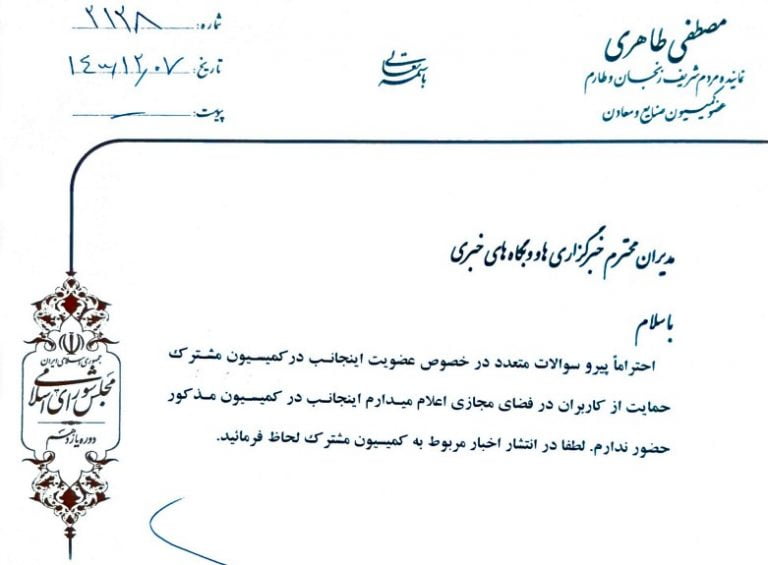 مصطفی طاهری
نماینده مردم شریف زنجان و طارم
عضو کمیسیون صنایع و معادن
باسمه تعالی
شماره: ۲۱۲۸
تاریخ: ۱۴۰۰/۱۲/۰۷
پیوست:
مدیران محترم خبرگزاری ها و وبگاه های خبری
با سلام
احتراماً پیرو سوالات متعدد در خصوص عضویت اینجانب در کمیسیون مشترک
حمایت از کاربران در فضای مجازی اعلام میدارم اینجانب در کمیسیون مذکور
حضور ندارم. لطفا در انتشار اخبار مربوط به کمیسیون مشترک لحاظ فرمائید.
جمهوری اسلامی ایران
مجلس شورای اسلامی
دوره یازدهم